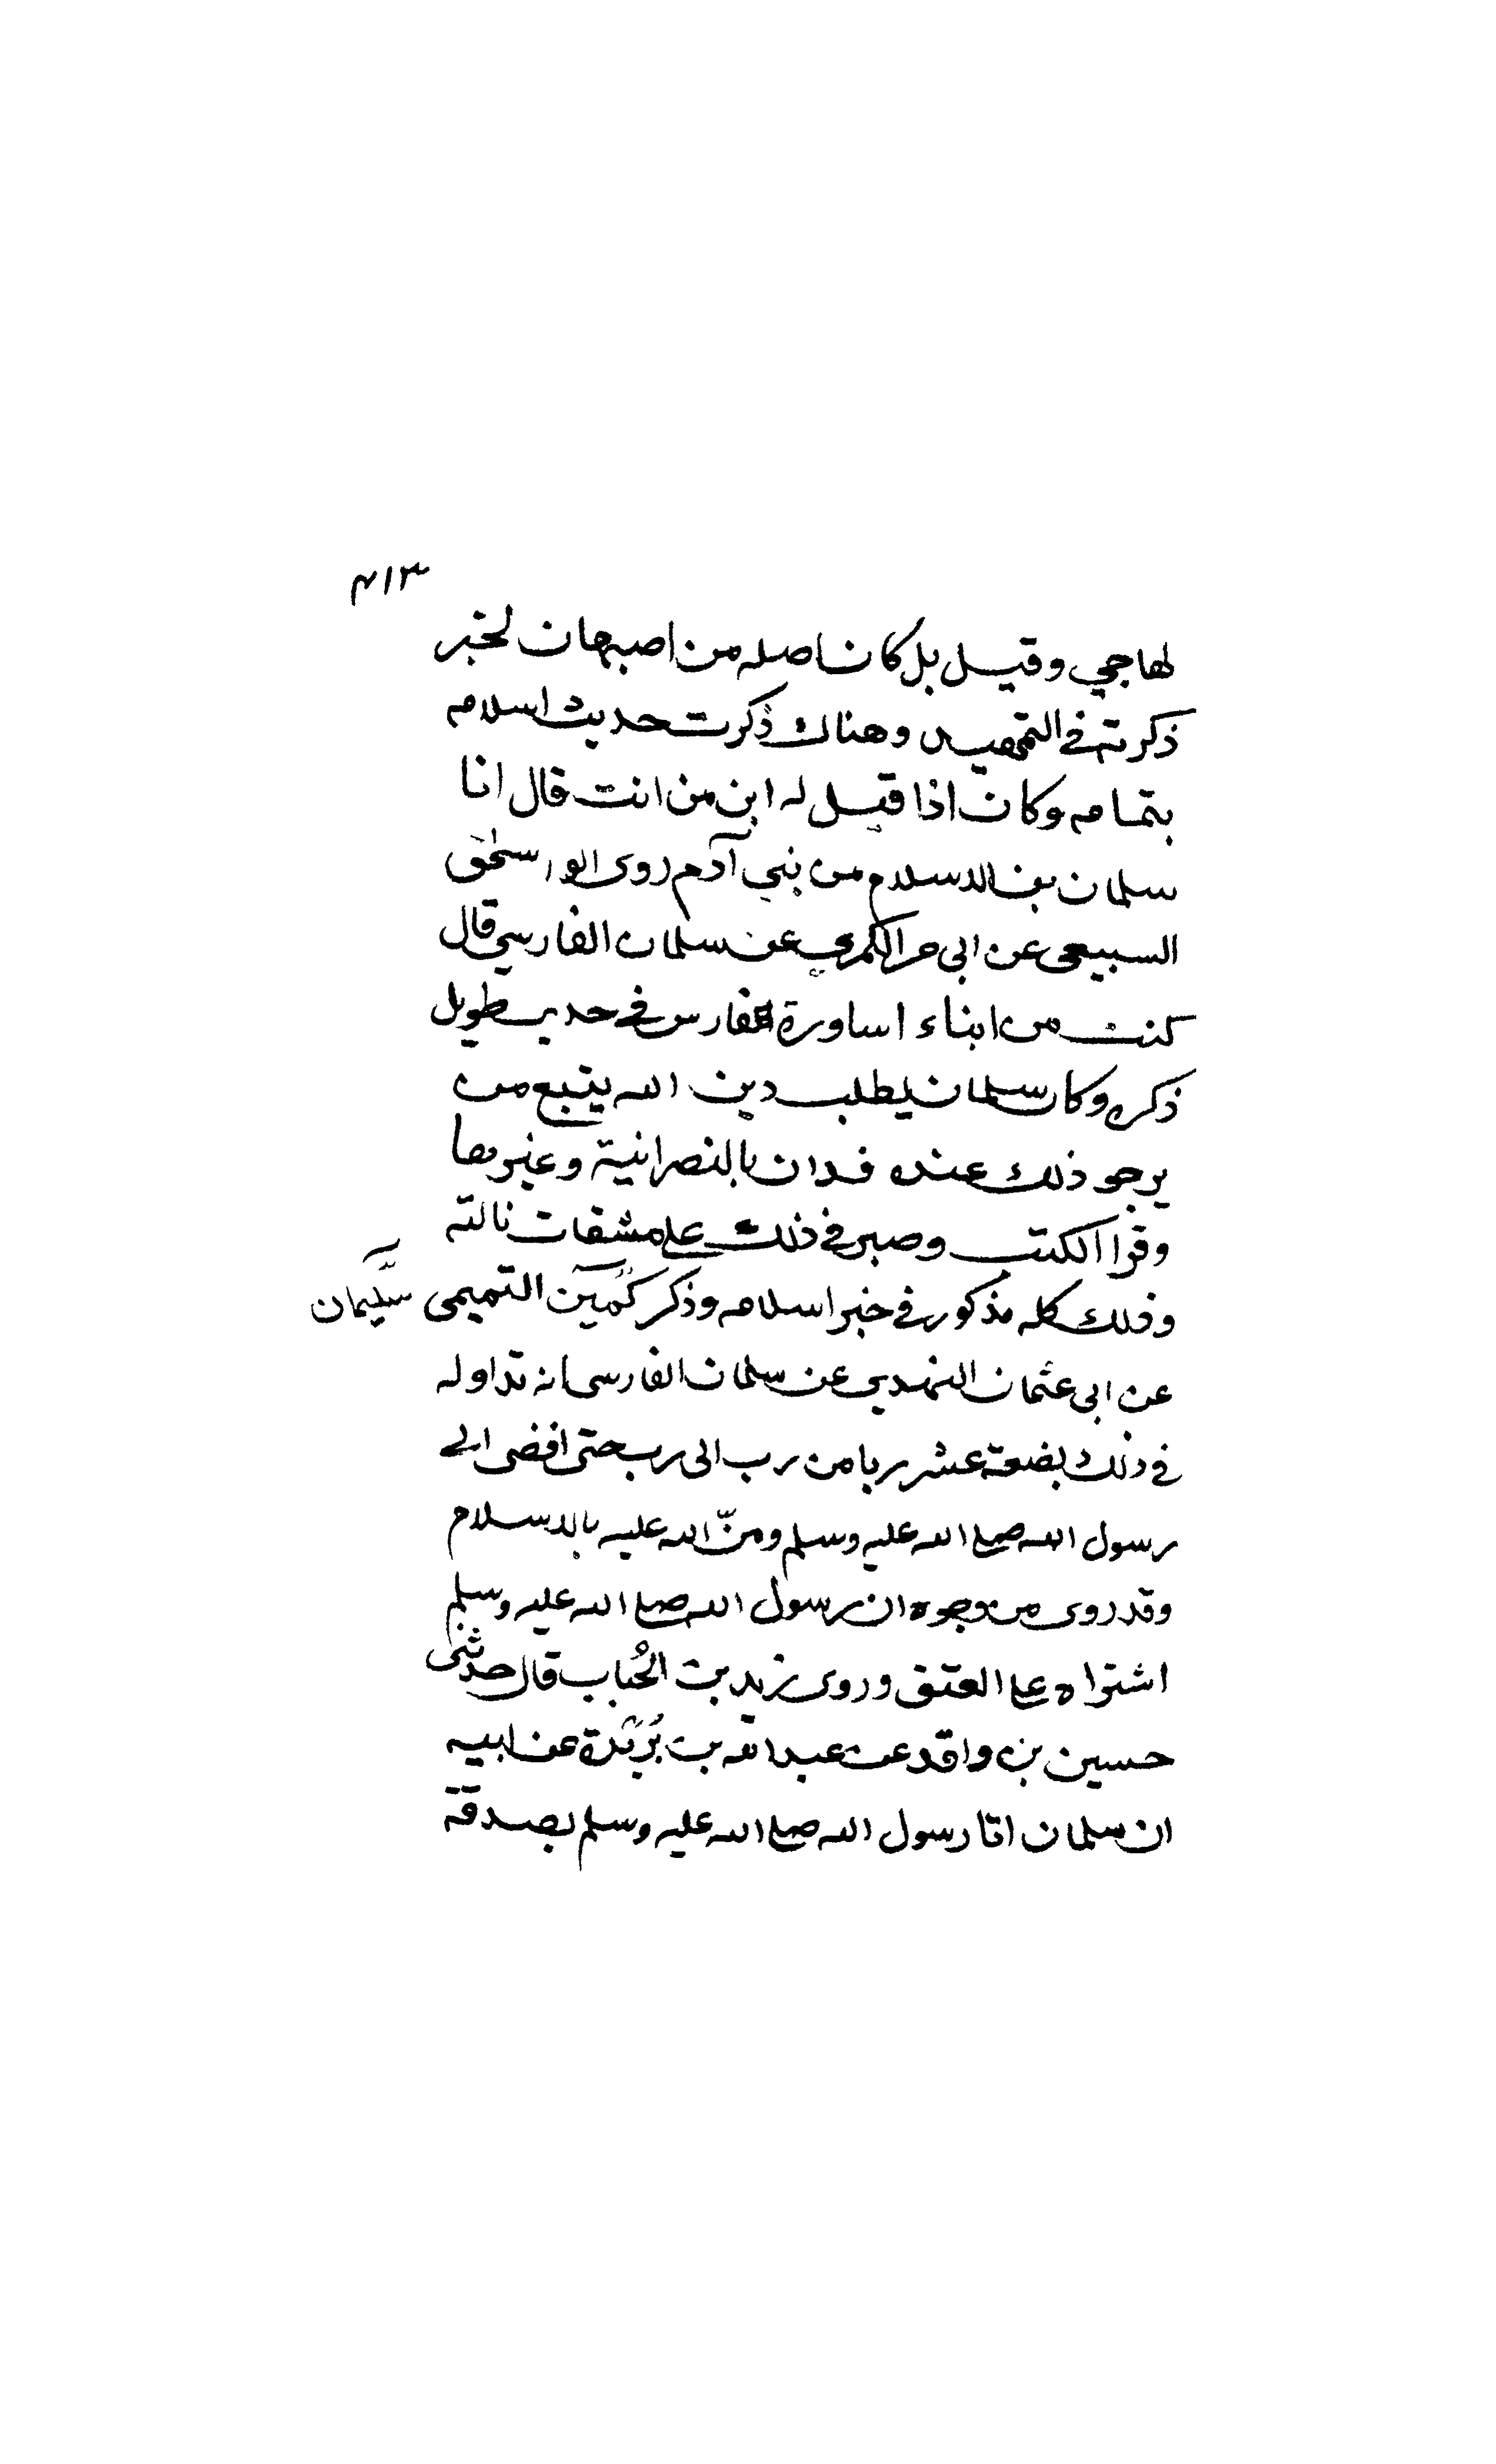 ٣١٣
لها جي وقيل بل كان اصله من اصبهان لخبر
ذكرته في التمهيد وهناك ذكرت حديث اسلامه
بتمامه وكان اذا قيل له ابن من انت قال انا
سلمان بن الاسلام من بني آدم روى ابو اسحق
السبيعى عن ابى الكندي عن سلمان الفارسي قال
كنت من ابناء اساورة فارس في حديث طويل
ذكره وكان سلمان يطلب دين الله يتبع من
يرجو ذلك عنده فدان بالنصرانية وغيرها
وقرا الكتب وصبر في ذلك على مشقات نالته
وذلك كله مذكور في خبر اسلامه وذكر التميمى سليمان
عن ابى عثمان النهدي عن سلمان الفارسى انه تداوله
في ذلك بضعة عشر ربا من رب الى رب حتى افضى الى
رسول الله صلى الله عليه وسلم ومنّ الله عليه بالاسلام
وقد روى من وجوه ان رسول الله صلى الله عليه وسلم
اشتراه على العتق وروى زيد بن الحُباب قال حدثنى
حسين بن واقد عن عبد الله بن بُرَيْدة عن ابيه
ان سلمان اتا رسول الله صلى الله عليه وسلم بصدقة